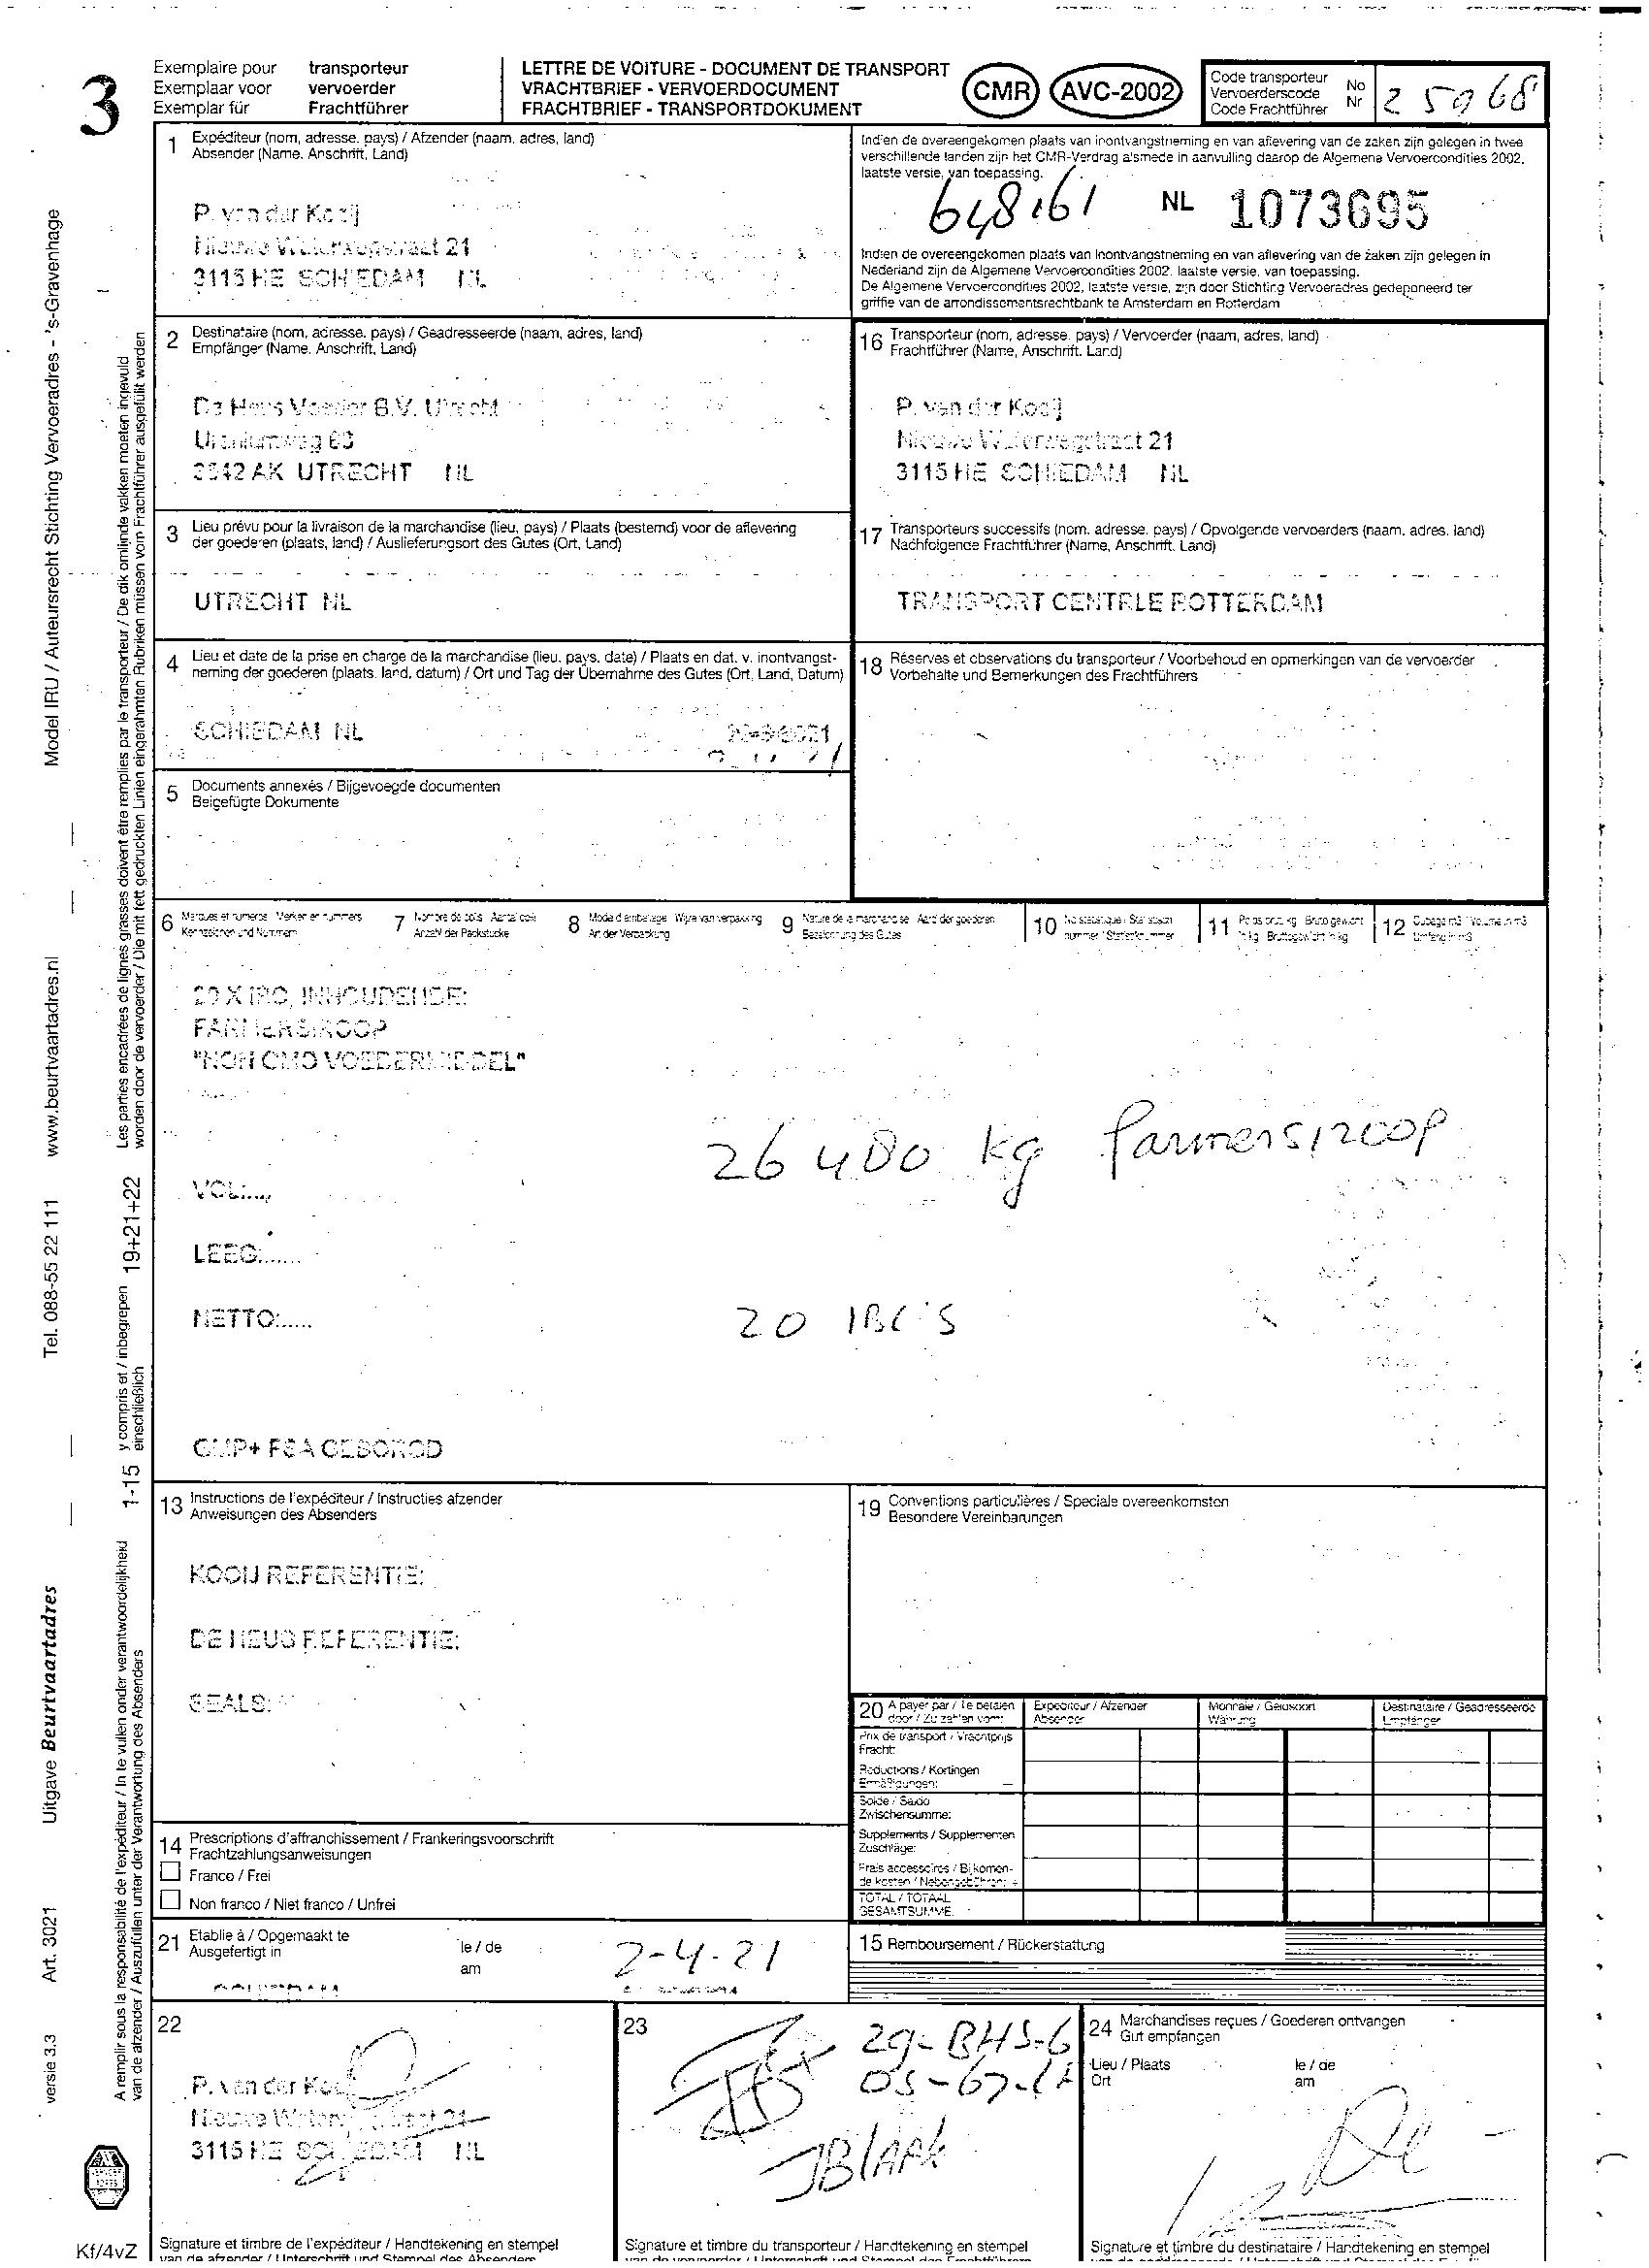 3
Exemplaire pour transporteur
Exemplaar voor vervoerder
Exemplar für Frachtführer
LETTRE DE VOITURE - DOCUMENT DE TRANSPORT
VRACHTBRIEF - VERVOERDOCUMENT
FRACHTBRIEF - TRANSPORTDOKUMENT
CMR AVC-2002
Code transporteur
Vervoerderscode
Code Frachtführer
No
Nr
25968
1 Expéditeur (nom, adresse, pays) / Afzender (naam, adres, land)
Absender (Name, Anschrift, Land)
P. van der Kooij
21
3115 HE SCHIEDAM NL
Indien de overeengekomen plaats van inontvangstneming en van aflevering van de zaken zijn gelegen in twee
verschillende landen zijn het CMR-Verdrag alsmede in aanvulling daarop de Algemene Vervoercondities 2002,
laatste versie, van toepassing.
64861
NL 1073695
Indien de overeengekomen plaats van inontvangstneming en van aflevering van de zaken zijn gelegen in
Nederland zijn de Algemene Vervoercondities 2002, laatste versie, van toepassing.
De Algemene Vervoercondities 2002, laatste versie, zijn door Stichting Vervoeradres gedeponeerd ter
griffie van de arrondissementsrechtbank te Amsterdam en Rotterdam
2 Destinataire (nom, adresse, pays) / Geadresseerde (naam, adres, land)
Empfänger (Name, Anschrift, Land)
De Heus Voeder B.V. Utrecht
Uraniumweg 63
3542 AK UTRECHT NL
16 Transporteur (nom, adresse, pays) / Vervoerder (naam, adres, land)
Frachtführer (Name, Anschrift, Land)
P. van der Kooij
21
3115 HE SCHIEDAM NL
3 Lieu prévu pour la livraison de la marchandise (lieu, pays) / Plaats (bestemd) voor de aflevering
der goederen (plaats, land) / Auslieferungsort des Gutes (Ort, Land)
UTRECHT NL
17 Transporteurs successifs (nom, adresse, pays) / Opvolgende vervoerders (naam, adres, land)
Nachfolgende Frachtführer (Name, Anschrift, Land)
TRANSPORT CENTRLE ROTTERDAM
4 Lieu et date de la prise en charge de la marchandise (lieu, pays, date) / Plaats en dat. v. inontvangst-
neming der goederen (plaats, land, datum) / Ort und Tag der Übernahme des Gutes (Ort, Land, Datum)
SCHIEDAM NL
18 Réserves et observations du transporteur / Voorbehoud en opmerkingen van de vervoerder
Vorbehalte und Bemerkungen des Frachtführers
5 Documents annexés / Bijgevoegde documenten
Beigefügte Dokumente
6 Marques et numéros Merken en nummers
Kennzeichen und Nummern
7 Nombre de colis Aantal colli
Anzahl der Packstücke
8 Mode d'emballage Wijze van verpakking
Art der Verpackung
9 Nature de la marchandise Aard der goederen
Bezeichnung des Gutes
10 No statistique Statistisch
nummer Statistiknummer
11 Poids brut, kg Bruto gewicht
in kg Bruttogewicht in kg
12 Cubage m3 Volume in m3
Umfang in m3
20 X IBC, INHOUDENDE:
FARMERSIROOP
"NON GMO VOEDERMIDDEL"
26480 kg farmersiroop
VOL:....
LEEG:......
NETTO:.....
20 IBC's
GMP+ FSA GEBORGD
13 Instructions de l'expéditeur / Instructies afzender
Anweisungen des Absenders
KOOIJ REFERENTIE:
DE HEUS REFERENTIE:
SEALS:
19 Conventions particulières / Speciale overeenkomsten
Besondere Vereinbarungen
20 A payer par / Te betalen
door / Zu zahlen vom:
Expéditeur / Afzender
Absender
Monnaie / Geldsoort
Währung
Destinataire / Geadresseerde
Empfänger
Prix de transport / Vrachtprijs
Fracht:
Réductions / Kortingen
Ermäßigungen: —
Solde / Saldo
Zwischensumme:
Suppléments / Supplementen
Zuschläge:
Frais accessoires / Bijkomen-
de kosten / Nebengebühren: +
TOTAL / TOTAAL
GESAMTSUMME:
14 Prescriptions d'affranchissement / Frankeringsvoorschrift
Frachtzahlungsanweisungen
Franco / Frei
Non franco / Niet franco / Unfrei
21 Etablie à / Opgemaakt te
Ausgefertigt in
le / de
am
2-4-21
15 Remboursement / Rückerstattung
22
P. van der Kooij
21
3115 HE SCHIEDAM NL
Signature et timbre de l'expéditeur / Handtekening en stempel
van de afzender / Unterschrift und Stempel des Absenders
23
29-BHS-6
JBlaak
Signature et timbre du transporteur / Handtekening en stempel
24 Marchandises reçues / Goederen ontvangen
Gut empfangen
Lieu / Plaats
Ort
le / de
am
Signature et timbre du destinataire / Handtekening en stempel
Model IRU / Auteursrecht Stichting Vervoeradres - 's-Gravenhage
www.beurtvaartadres.nl
Tel. 088-55 22 111
Uitgave Beurtvaartadres
Art. 3021
versie 3.3
Les parties encadrées de lignes grasses doivent être remplies par le transporteur / De dik omlinde vakken moeten ingevuld
worden door de vervoerder / Die mit fett gedruckten Linien eingerahmten Rubriken müssen vom Frachtführer ausgefüllt werden
19+21+22
y compris et / inbegrepen
einschließlich
1-15
A remplir sous la responsabilité de l'expéditeur / In te vullen onder verantwoordelijkheid
van de afzender / Auszufüllen unter der Verantwortung des Absenders
Kf/4vZ